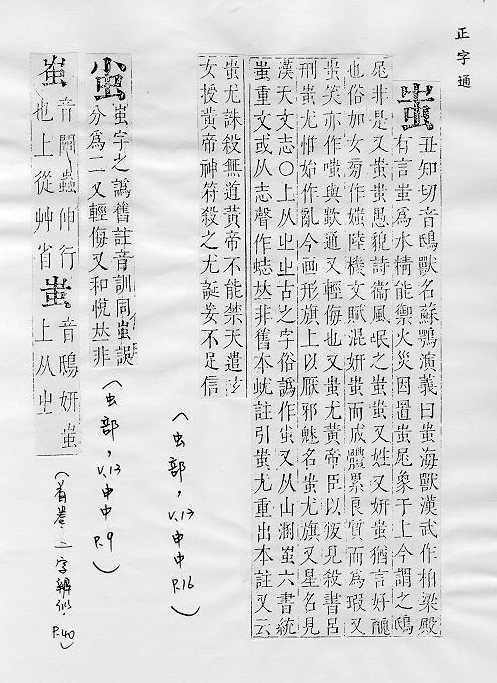 正字通
蚩 丑知切音鴟獸名蘇鶚演義曰蚩海獸漢武作柏梁殿
有言蚩爲水精能禦火災因置蚩尾象于上今謂之鴟
尾非是又蚩蚩愚貌詩衞風氓之蚩蚩又姓又妍蚩猶言好醜
也俗加女旁作媸陸機文賦混妍蚩而成體累良質而爲瑕又
蚩笑亦作嗤與歎通又輕侮也又蚩尤黃帝臣以叛見殺書呂
刑蚩尤惟始作亂今画形旗上以厭邪魅名蚩尤旗又星名見
漢天文志○上从㞢㞢古之字俗譌作蚩又从山溷蚩六書統
蚩重文或从志聲作𠀤非舊本蚘註引蚩尤重出本註又云
蚩尤誅殺無道黃帝不能禁天遣玄
女授黃帝神符殺之尤誕妄不足信
(虫部，v.13 申中 P.16)
蚩字之譌舊註音訓同蚩誤
分爲二又輕侮又和悅𠀤非
(虫部，v.13 申中 P.9)
音闡蟲伸行
也上從艸省
蚩 音鴟妍蚩
上从㞢
(首卷，二字辨似，P.40)